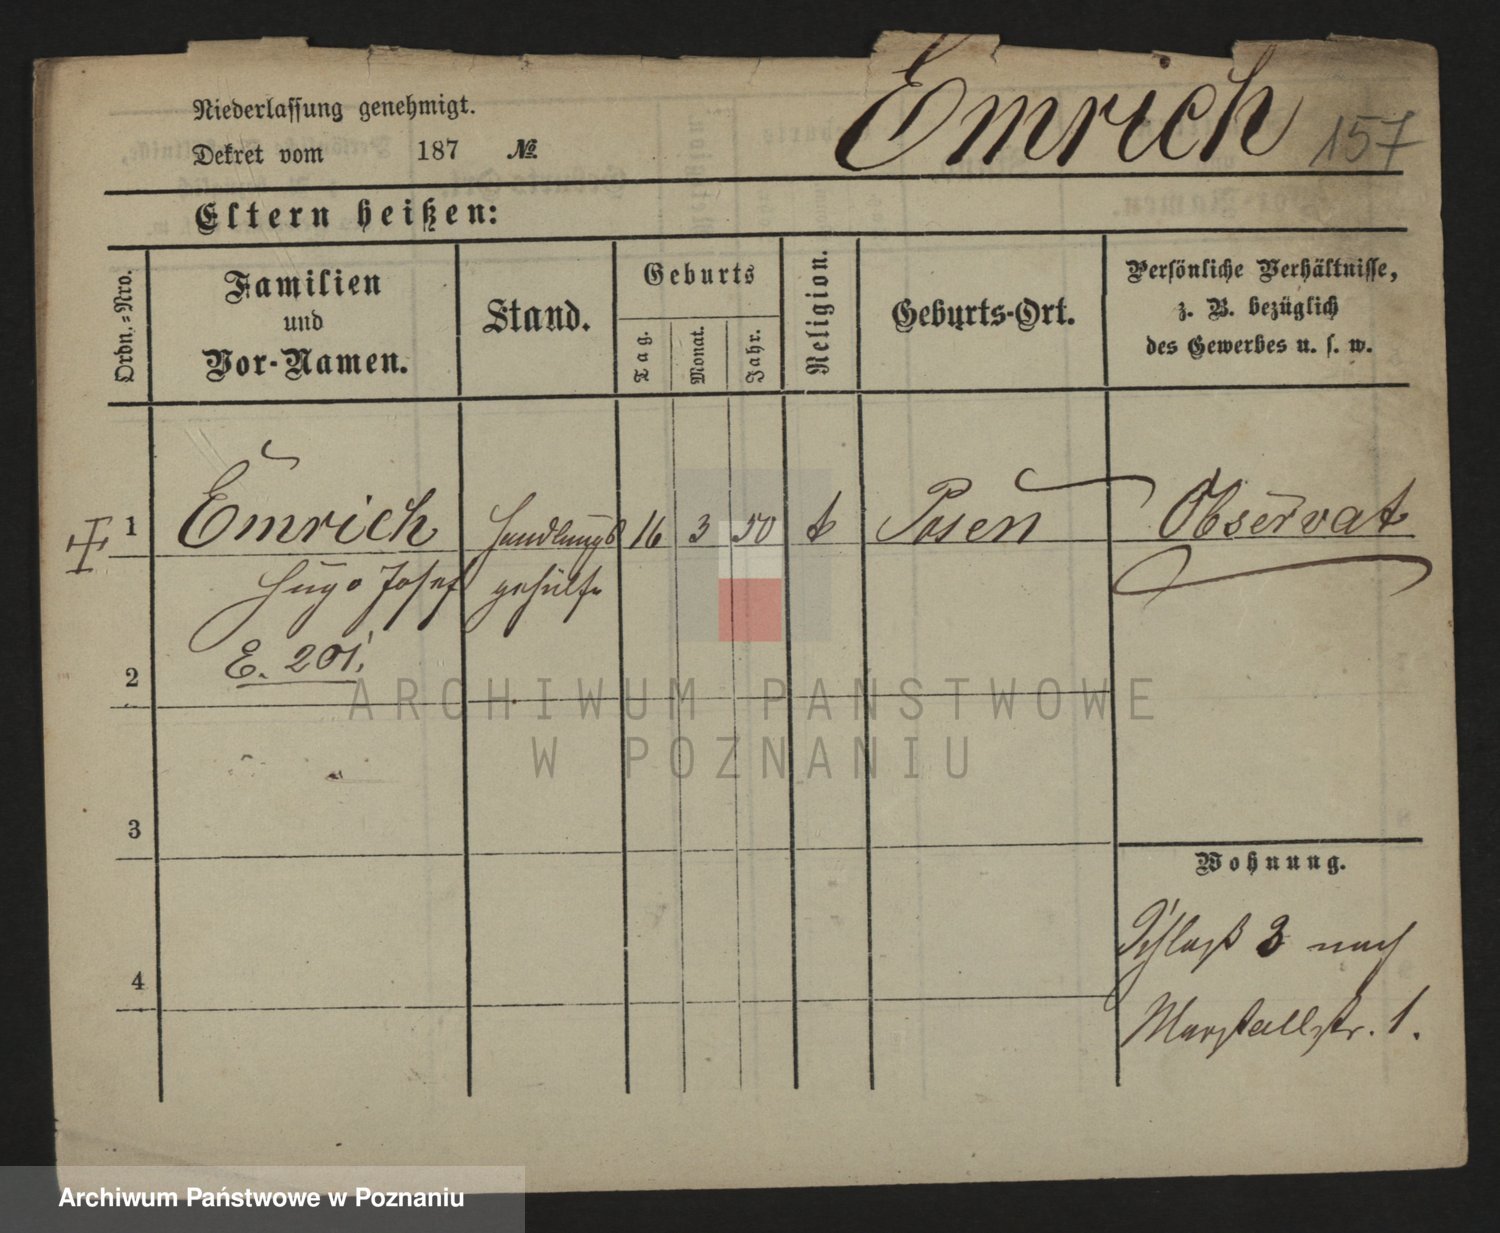 Emrich 157
Niederlassung genehmigt.
Dekret vom 187 №
Eltern heißen:
Ordn.-Nro.
Familien
und
Vor-Namen.
Stand.
Geburts
Tag.
Monat.
Jahr.
Religion.
Geburts-Ort.
Persönliche Verhältnisse,
z. B. bezüglich
des Gewerbes u. s. w.
1 Emrich Handlungs 16 3 50 k Posen Observat
Hugo Josef gehülfe
E. 201.
2
3
4
Wohnung.
Schloß 3 nach
Marstallstr. 1.
ARCHIWUM PAŃSTWOWE
W POZNANIU
Archiwum Państwowe w Poznaniu